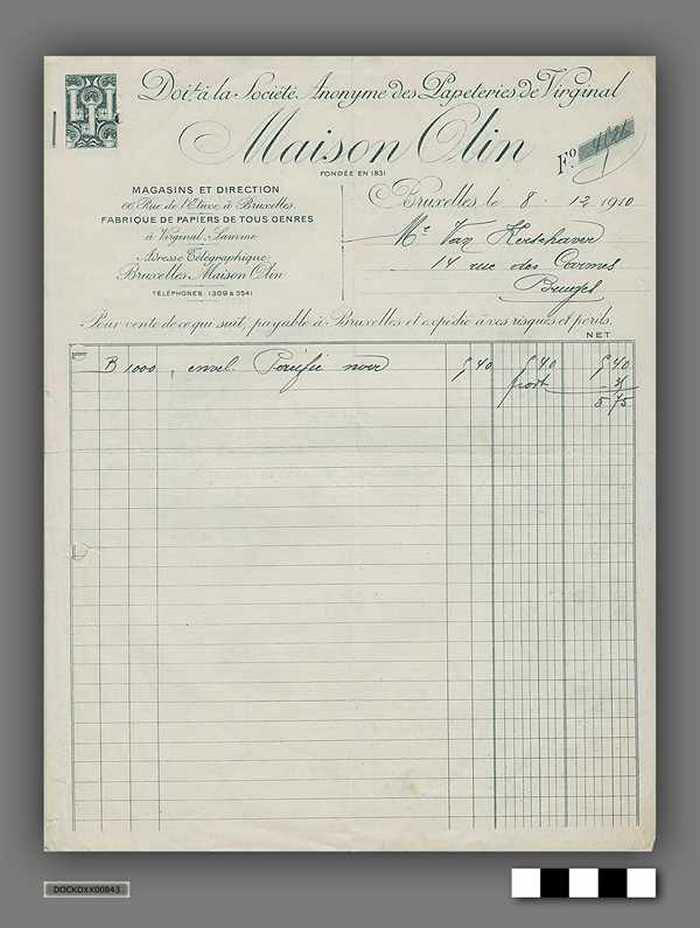 Doit à la Société Anonyme des Papeteries de Virginal
Maison Olin
FONDÉE EN 1831
Fº
MAGASINS ET DIRECTION
60, Rue de l'Etuve à Bruxelles.
FABRIQUE DE PAPIERS DE TOUS GENRES
à Virginal-Samme
Adresse Télégraphique:
Bruxelles Maison Olin
TÉLÉPHONES: 1309 & 3541
Bruxelles le 8 - 12 1910
Mr Van
14 rue des Carmes
Bruges
Pour vente de ce qui suit, payable à Bruxelles et expédié à vos risques et périls.
NET
B 1000 envel. noir 5 40 5 40 5 40
port
5 75
DOCKDXX00843